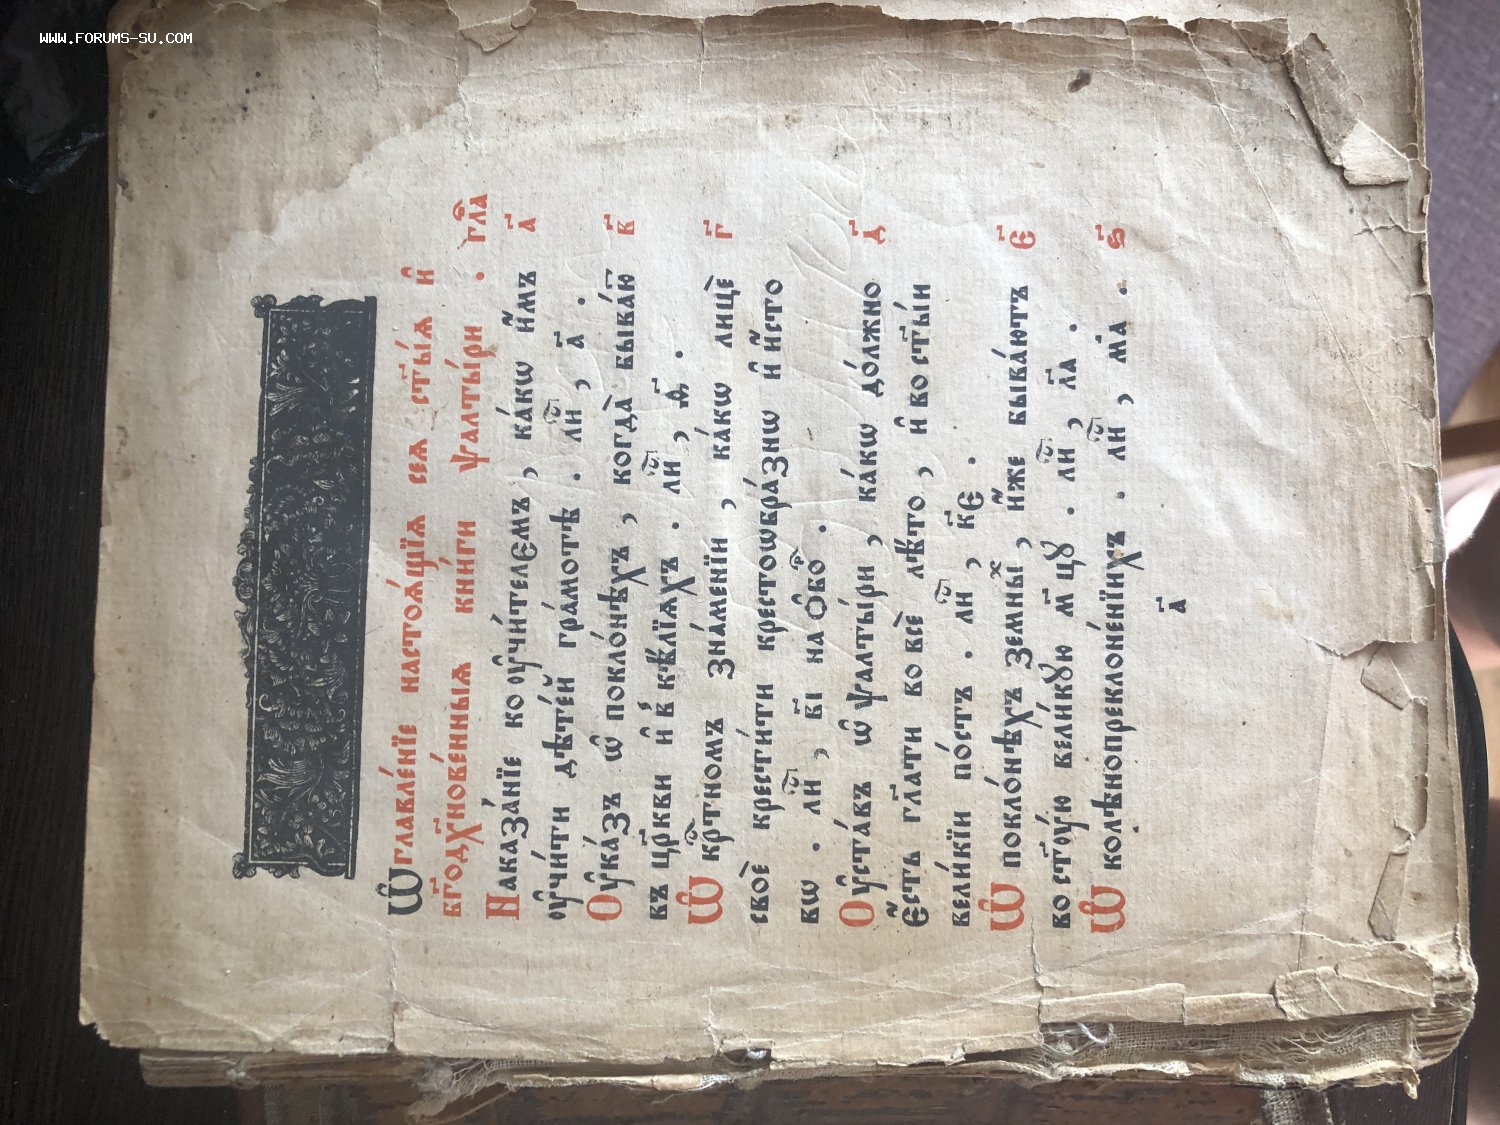 WWW.FORUMS-SU.COM
Ѡ҆главле́нїе настоѧ́щїѧ сеѧ̀ ст҃ы́ѧ и҆
бг҃одꙋхнове́нныѧ кни́ги ѱалты́ри . гла
Наказа́нїе ко ᲂу҆чи́телємъ , ка́кѡ и҆̀мъ а҃
ᲂу҆чи́ти дѣте́й гра́мотѣ . ли , а҃ .
Оу҆ка́зъ ѡ҆ покло́нѣхъ , когда̀ быва́ю в҃
въ цр҃кви и҆ в ке́лїѧхъ . ли , ѳ҃ .
Ѡ҆ крⷭ҇тномъ зна́менїи , ка́кѡ лицѐ г҃
своѐ крести́ти крестоѡбра́знѡ и҆ и҆́сто
вѡ . ли , в҃і на ѻ҆бо .
Оу҆ста́въ ѡ҆ ѱалты́ри , ка́кѡ до́лжно д҃
є҆́сть гл҃ати во всѐ лѣ́то , и҆ во ст҃ы́и
вели́кїи по́стъ . ли , к҃є .
Ѡ҆ покло́нѣхъ земны́х , и҆́же быва́ютъ є҃
во ст҃ꙋ́ю вели́кꙋю м҃ цꙋ . ли , л҃а .
Ѡ҆ колѣнопреклоне́нїихъ . ли , м҃а . ѕ҃
а҃